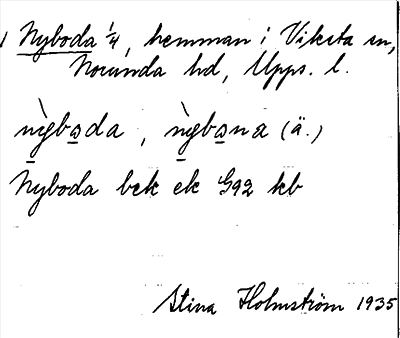 Nyboda 1/4, hemman i Viksta sn,
Norunda hd, Upps. l.
nìgbɷda, nìgbɷna (ä.)
Nyboda bek ek G92 kb
Stina Holmström 1935